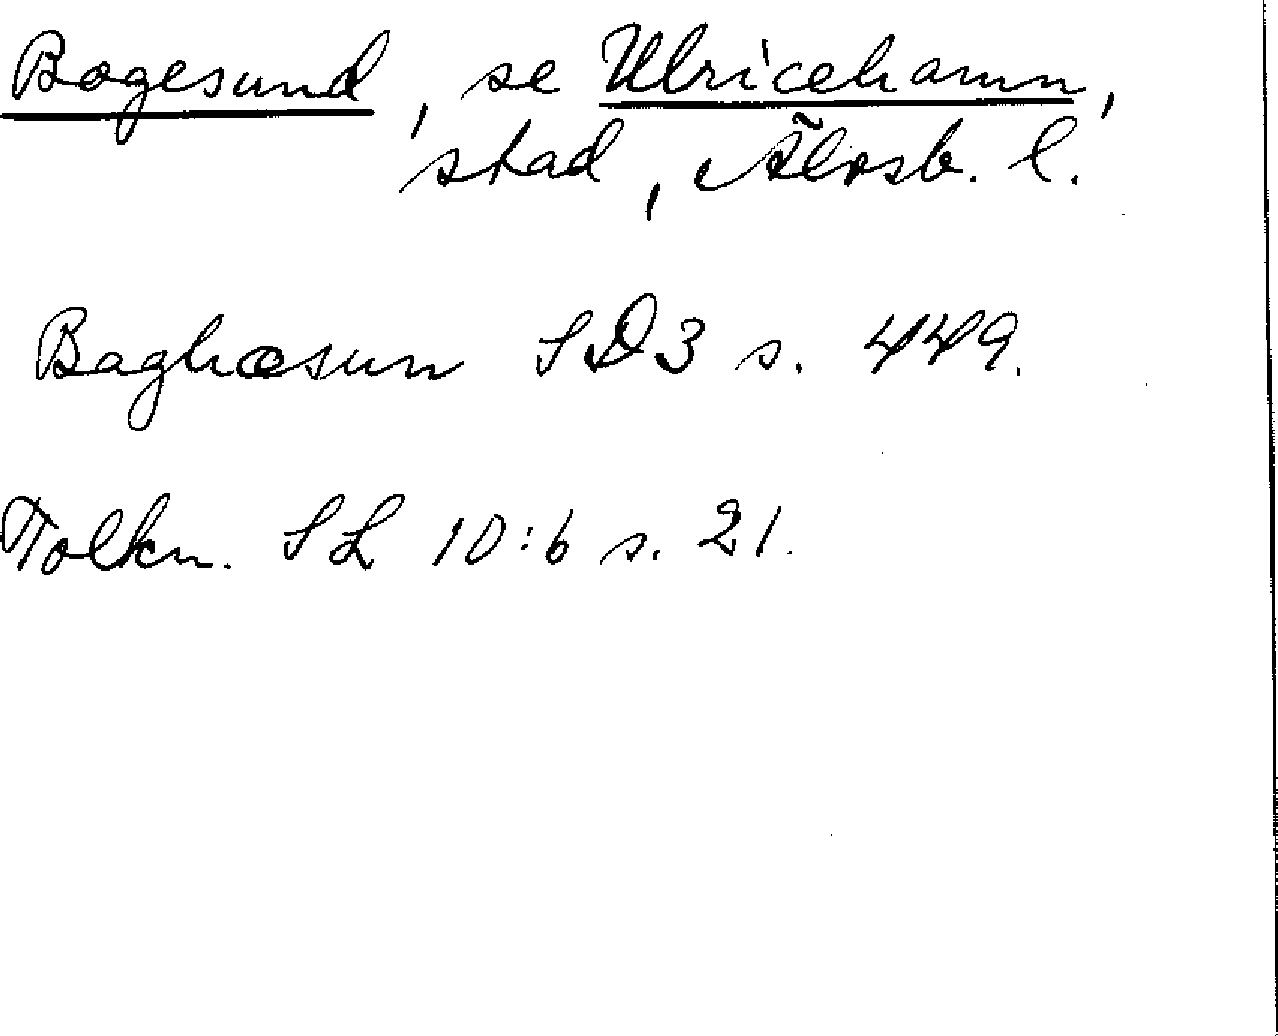 Bogesund, se Ulricehamn,
stad, Älvsb. l.
Baghæsun SD3 s. 449.
Tolkn. SL 10:6 s. 21.